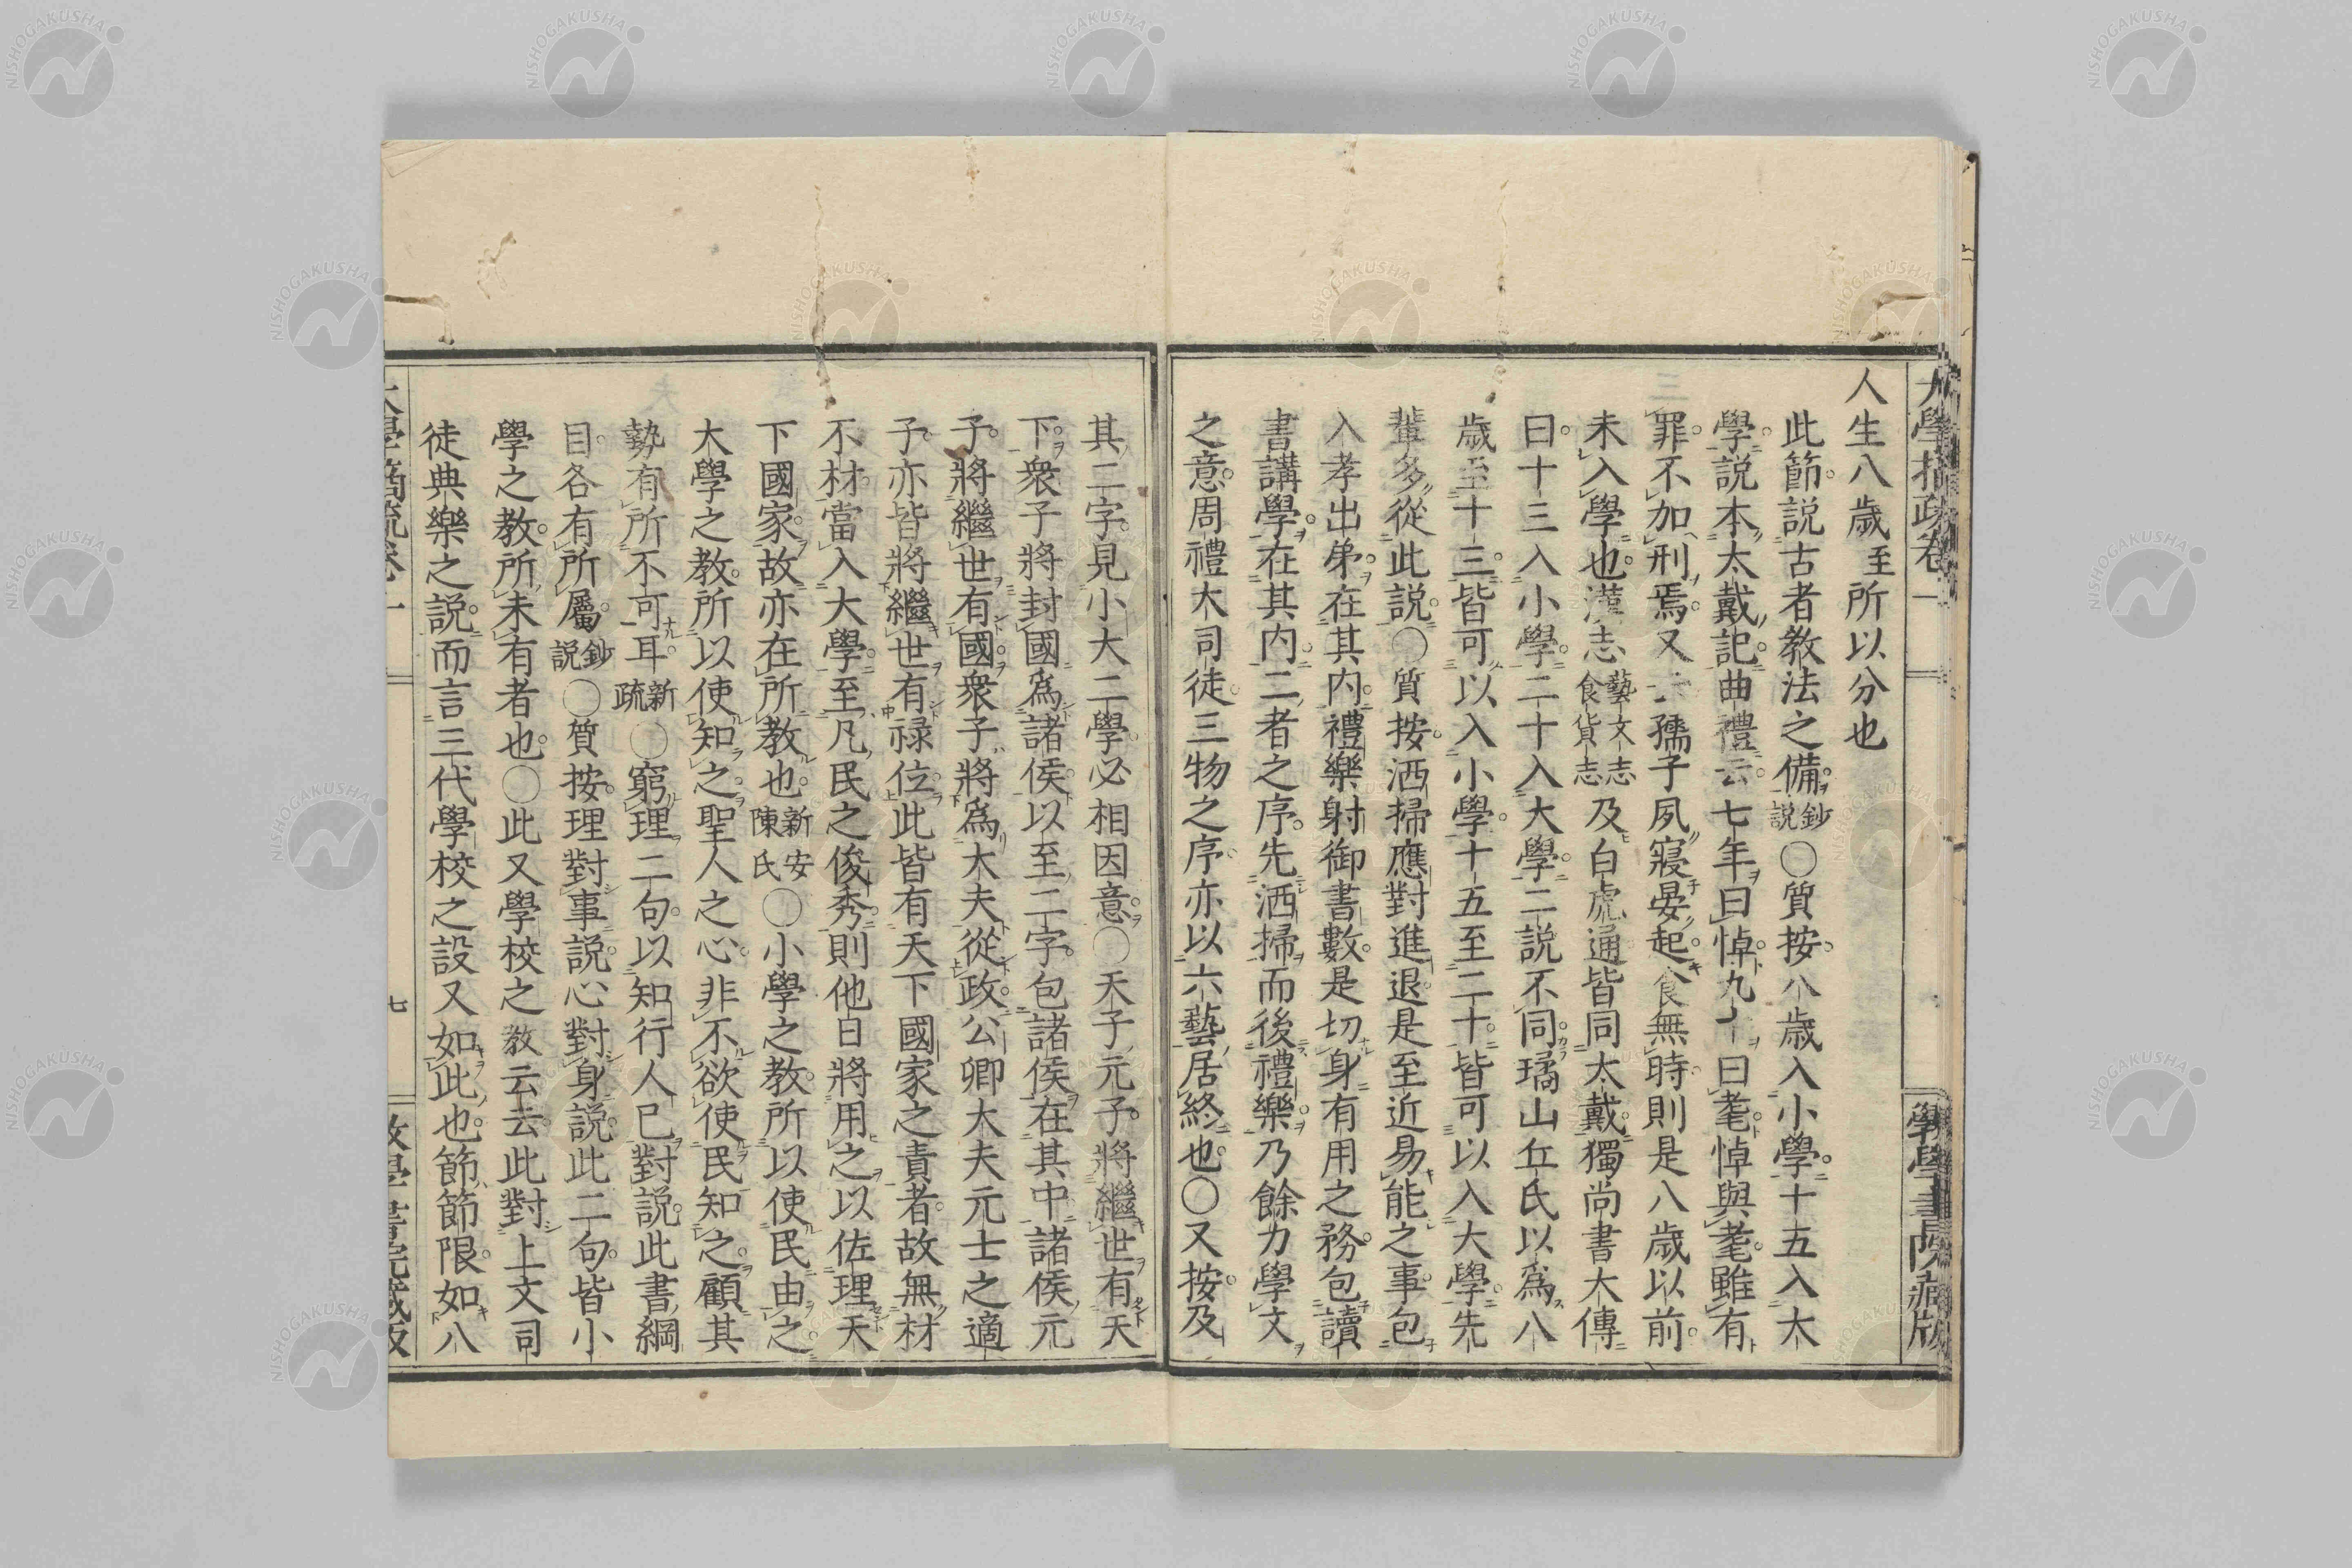 大學摘疏卷一
斆學書院藏版
人生八歲至所以分也
此節説古者教法之備鈔説〇質按八歲入小學十五入大
學説本太戴記曲禮云七年曰悼九十曰耄悼與耄雖有
罪不加刑焉又云孺子夙寢晏起食無時則是八歲以前
未入學也漢志藝文志食貨志及白虎通皆同太戴獨尚書大傳
曰十三入小學二十入大學二説不同璚山丘氏以爲八
歲至十三皆可以入小學十五至二十皆可以入大學先
輩多從此説〇質按洒掃應對進退是至近易能之事包
入孝出弟在其内禮樂射御書數是切身有用之務包讀
書講學在其内二者之序先洒掃而後禮樂乃餘力學文
之意周禮大司徒三物之序亦以六藝居終也〇又按及
其二字見小大二學必相因意〇天子元子將繼世有天
下衆子將封國爲諸侯以至二字包諸侯在其中諸侯元
子將繼世有國衆子將爲大夫從政公卿大夫元士之適
子亦皆將繼世有禄位此皆有天下國家之責者故無材
不材當入大學至凡民之俊秀則他日將用之以佐理天
下國家故亦在所教也新安陳氏〇小學之教所以使民由之
大學之教所以使知之聖人之心非不欲使民知之顧其
勢有所不可耳新疏〇窮理二句以知行人已對説此書綱
目各有所屬鈔説〇質按理對事説心對身説此二句皆小
學之教所未有者也〇此又學校之教云云此對上文司
徒典樂之説而言三代學校之設又如此也節節限如八
大學摘疏卷一
七
斆學書院藏版